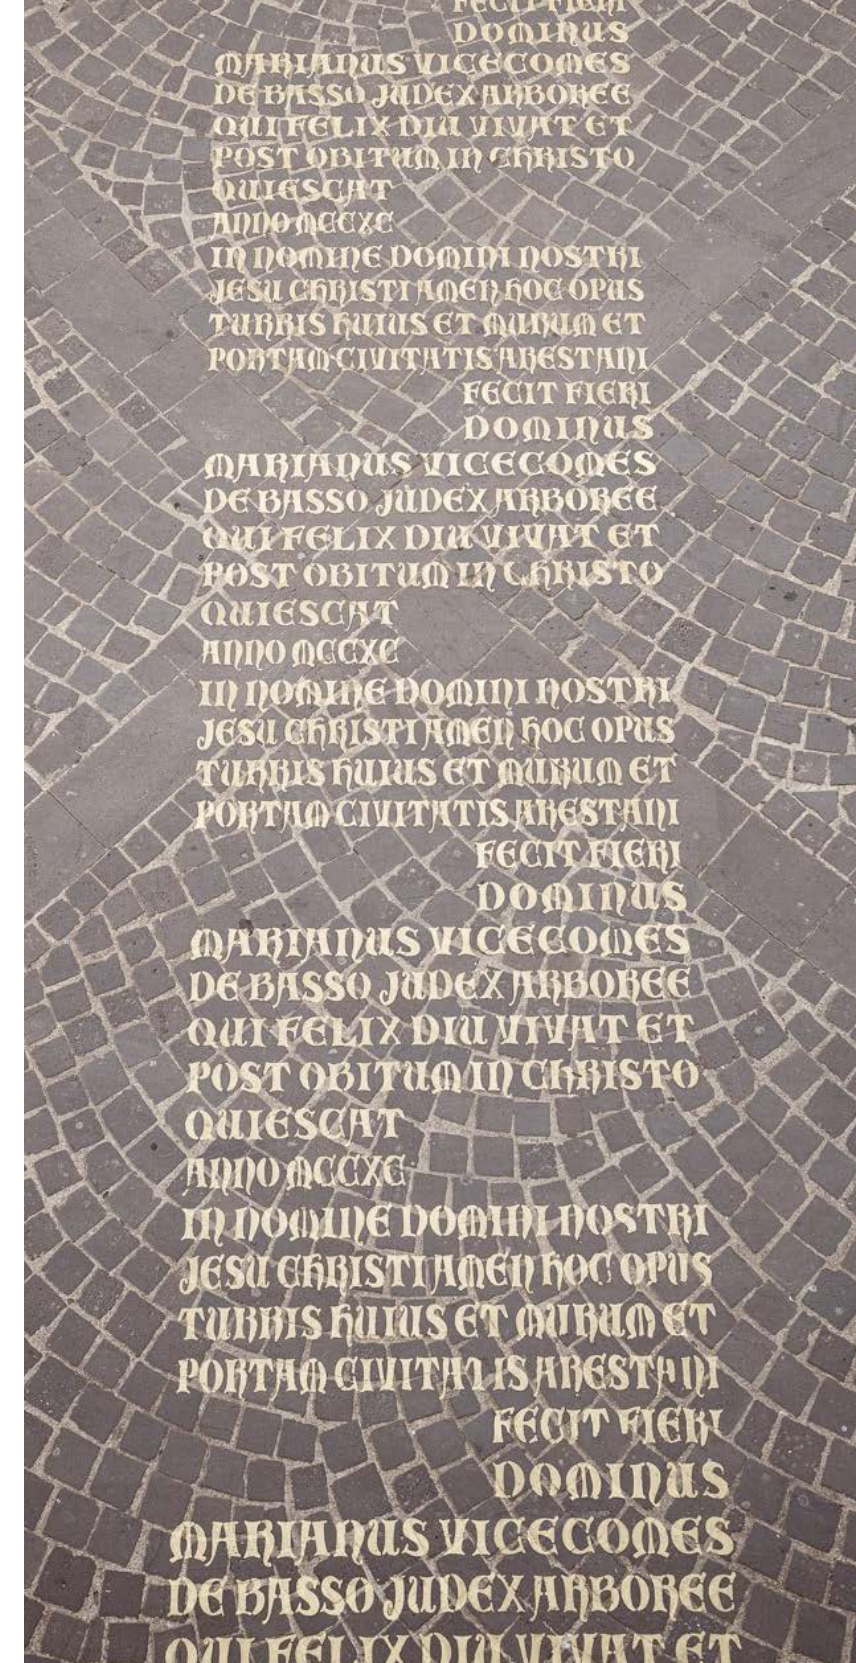 FECIT FIERI
DOMINUS
MARIANUS VICECOMES
DE BASSO JUDEX ARBOREE
QUI FELIX DIU VIVAT ET
POST OBITUM IN CHRISTO
QUIESCAT
ANNO MCCXC
IN NOMINE DOMINI NOSTRI
JESU CHRISTI AMEN HOC OPUS
TURRIS HUIUS ET MURUM ET
PORTAM CIVITATIS ARESTANI
FECIT FIERI
DOMINUS
MARIANUS VICECOMES
DE BASSO JUDEX ARBOREE
QUI FELIX DIU VIVAT ET
POST OBITUM IN CHRISTO
QUIESCAT
ANNO MCCXC
IN NOMINE DOMINI NOSTRI
JESU CHRISTI AMEN HOC OPUS
TURRIS HUIUS ET MURUM ET
PORTAM CIVITATIS ARESTANI
FECIT FIERI
DOMINUS
MARIANUS VICECOMES
DE BASSO JUDEX ARBOREE
QUI FELIX DIU VIVAT ET
POST OBITUM IN CHRISTO
QUIESCAT
ANNO MCCXC
IN NOMINE DOMINI NOSTRI
JESU CHRISTI AMEN HOC OPUS
TURRIS HUIUS ET MURUM ET
PORTAM CIVITATIS ARESTANI
FECIT FIERI
DOMINUS
MARIANUS VICECOMES
DE BASSO JUDEX ARBOREE
QUI FELIX DIU VIVAT ET